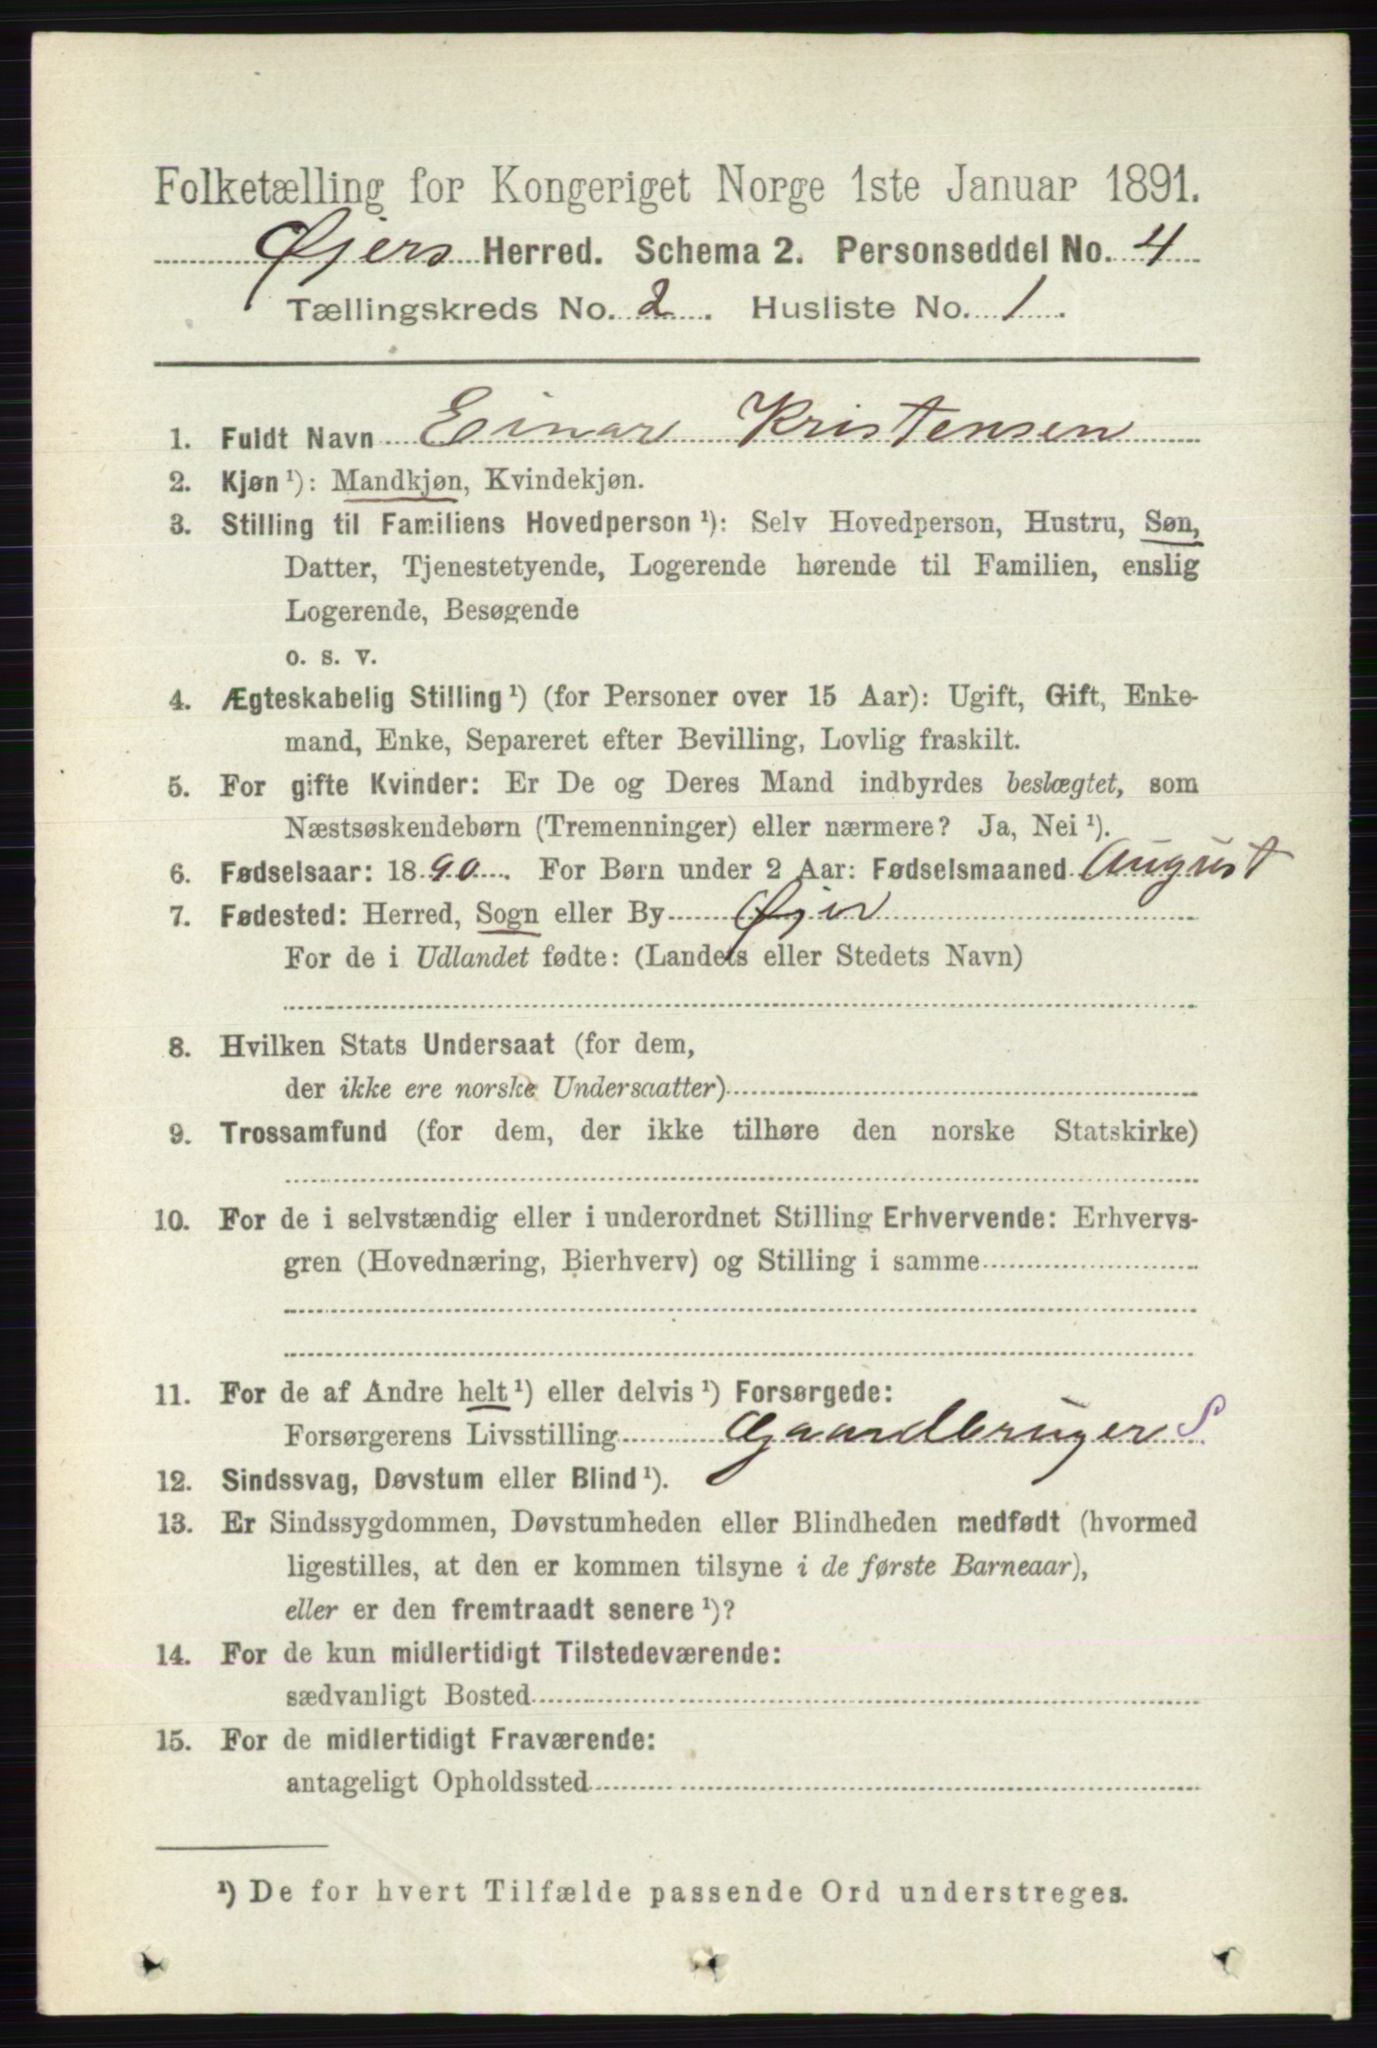 Folketælling for Kongeriget Norge 1ste Januar 1891.
Øjers Herred. Schema 2. Personseddel No. 4
Tællingskreds No. 2. Husliste No. 1.
1. Fuldt Navn Einar Kristensen
2. Kjøn ¹): Mandkjøn, Kvindekjøn.
3. Stilling til Familiens Hovedperson ¹): Selv Hovedperson, Hustru, Søn,
Datter, Tjenestetyende, Logerende hørende til Familien, enslig
Logerende, Besøgende
o. s. v.
4. Ægteskabelig Stilling ¹) (for Personer over 15 Aar): Ugift, Gift, Enke-
mand, Enke, Separeret efter Bevilling, Lovlig fraskilt.
5. For gifte Kvinder: Er De og Deres Mand indbyrdes beslægtet, som
Næstsøskendebørn (Tremenninger) eller nærmere? Ja, Nei ¹).
6. Fødselsaar: 1890. For Børn under 2 Aar: Fødselsmaaned August
7. Fødested: Herred, Sogn eller By Øjer
For de i Udlandet fødte: (Landets eller Stedets Navn)
8. Hvilken Stats Undersaat (for dem,
der ikke ere norske Undersaatter)
9. Trossamfund (for dem, der ikke tilhøre den norske Statskirke)
10. For de i selvstændig eller i underordnet Stilling Erhvervende: Erhvervs-
gren (Hovednæring, Bierhverv) og Stilling i samme
11. For de af Andre helt ¹) eller delvis ¹) Forsørgede:
Forsørgerens Livsstilling Gaardbruger S
12. Sindssvag, Døvstum eller Blind ¹).
13. Er Sindssygdommen, Døvstumheden eller Blindheden medfødt (hvormed
ligestilles, at den er kommen tilsyne i de første Barneaar),
eller er den fremtraadt senere ¹)?
14. For de kun midlertidigt Tilstedeværende:
sædvanligt Bosted
15. For de midlertidigt Fraværende:
antageligt Opholdssted
¹) De for hvert Tilfælde passende Ord understreges.